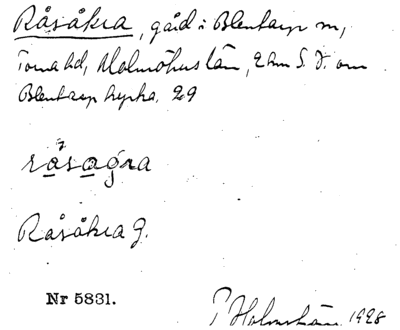 Råsåkra, gård i Blentarp sn,
Torna hd, Malmöhus län, 2 km S. V. om
Blentarp kyrka. 29
råsagra
Råsåkra g.
Nr 5831.
P Holmstän 1928